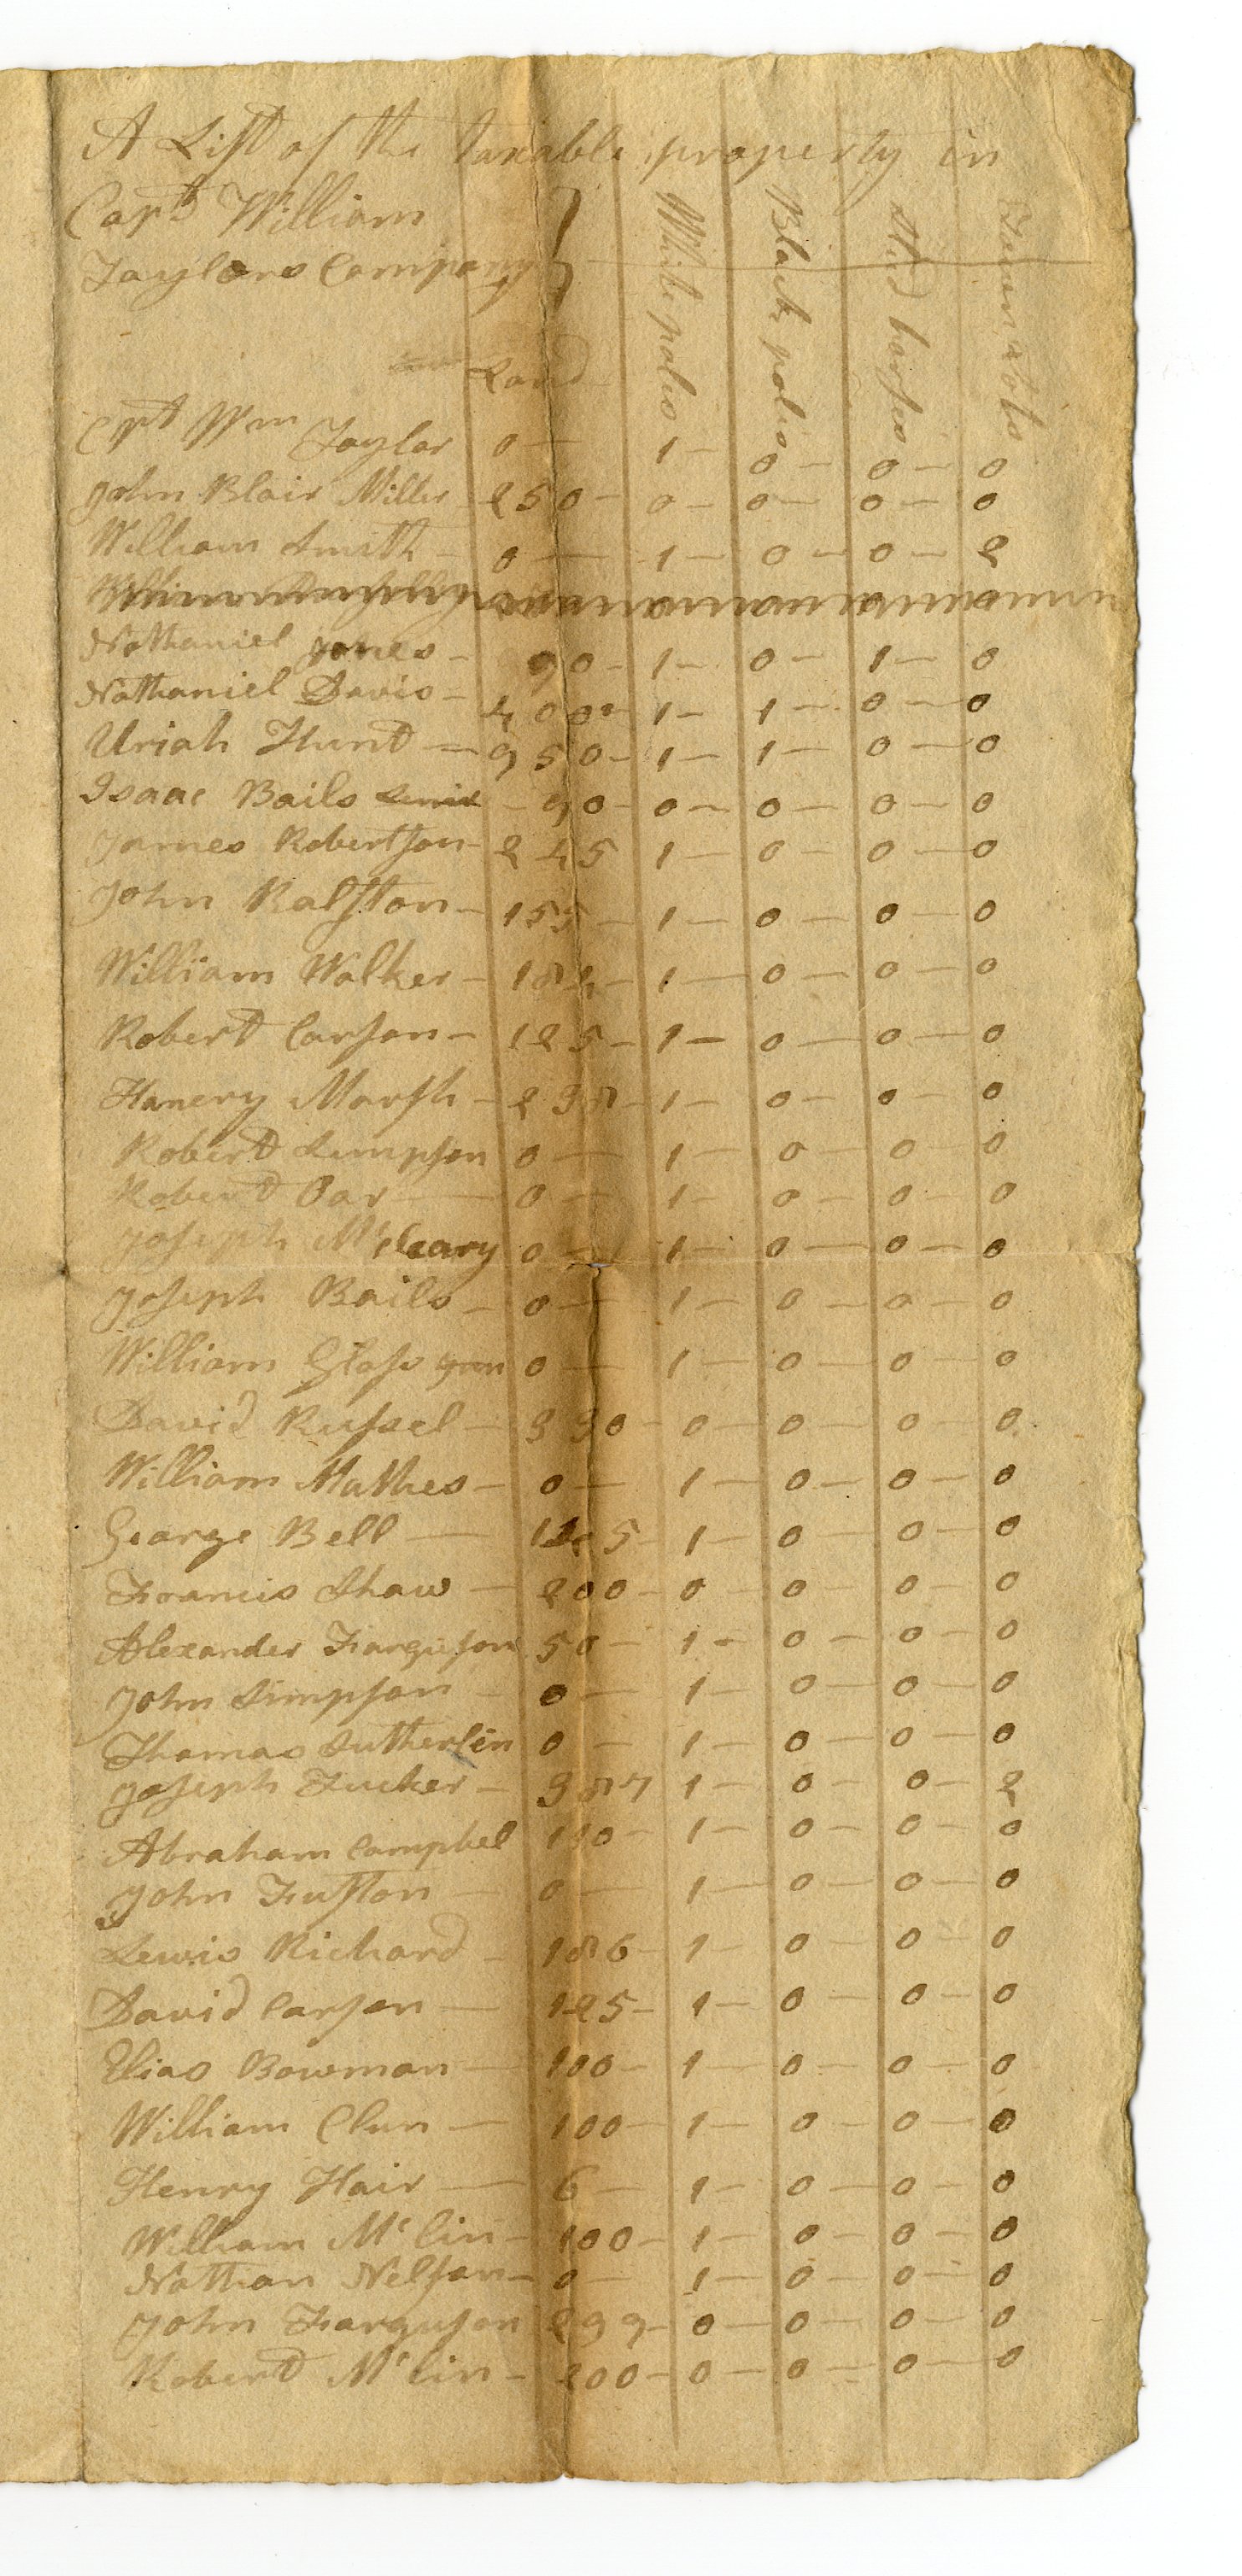 A List of the taxable property in
Capt William
Taylors Company
Land White poles Black poles Stud horses Town Lots
Cpt Wm Taylor 0 — 1 — 0 — 0 — 0
John Blair Miller — 250 — 0 — 0 — 0 — 0
William Smith — 0 — 1 — 0 — 0 — 2
Nathaniel Jones — 90 — 1 — 0 — 1 — 0
Nathaniel Davis — 400 — 1 — 1 — 0 — 0
Uriah Hunt — 950 — 1 — 1 — 0 — 0
Isaac Bails — 90 — 0 — 0 — 0 — 0
James Robertson — 245 1 — 0 — 0 — 0
John Ralston — 155 — 1 — 0 — 0 — 0
William Walker — 184 — 1 — 0 — 0 — 0
Robert Carson — 125 — 1 — 0 — 0 — 0
Hanery Marsh — 238 — 1 — 0 — 0 — 0
Robert Simpson 0 — 1 — 0 — 0 — 0
Robert Oar — 0 — 1 — 0 — 0 — 0
Joseph McCleary 0 — 1 — 0 — 0 — 0
Joseph Bails — 0 — 1 — 0 — 0 — 0
William Glass 0 — 1 — 0 — 0 — 0
David Russel — 330 — 0 — 0 — 0 — 0
William Mathes — 0 — 1 — 0 — 0 — 0
George Bell — 1 — 0 0 — 0
Francis Shaw — 200 — 0 — 0 0 — 0
Alexander Farguson 50 — 1 — 0 — 0 — 0
John Simpson — 0 — 1 — 0 — 0 — 0
Thomas Sutherlin 0 — 1 — 0 — 0 — 0
Joseph Tucker — 387 1 — 0 — 0 — 2
Abraham Campbel 110 — 1 — 0 — 0 — 0
John Fuston — 0 — 1 — 0 — 0 — 0
Lewis Richard — 186 — 1 — 0 — 0 — 0
David Carson — 125 — 1 — 0 — 0 — 0
Elias Bowman — 100 — 1 — 0 — 0 — 0
William Clun — 100 — 1 — 0 — 0 — 0
Henry Hair — 6 — 1 — 0 — 0 — 0
William Mc lin — 100 — 1 — 0 — 0 — 0
Nathan Nelson — 0 — 1 — 0 — 0 — 0
John Farguson 299 — 0 — 0 — 0 — 0
Robert Mc lin — 200 — 0 — 0 — 0 — 0